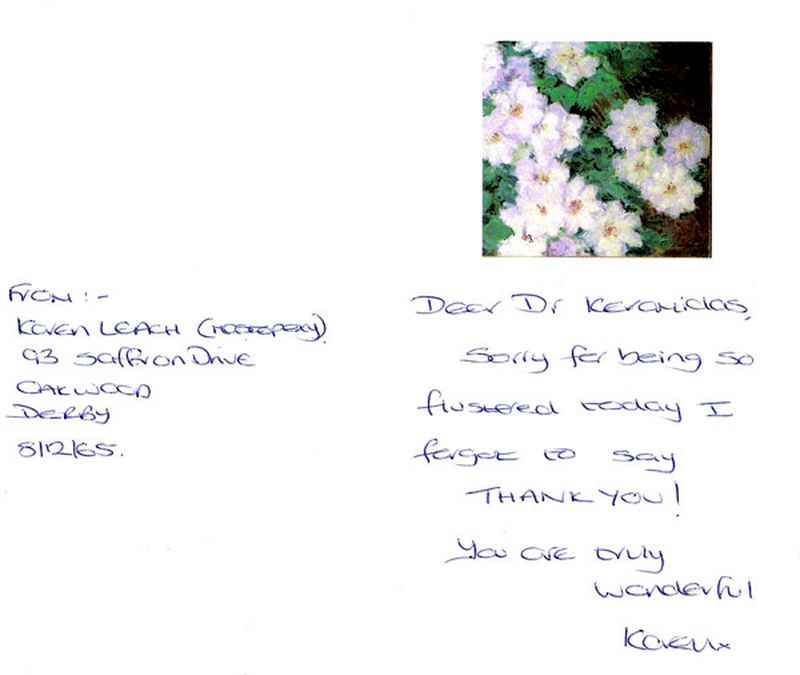 From :-
Karen LEACH (mastopexy)
93 Saffron Drive
OAKWOOD
DERBY
8/12/65.
Dear Dr Keramidas,
Sorry for being so
flustered today I
forgot to say
THANK YOU!
You are truly
wonderful
Karen x